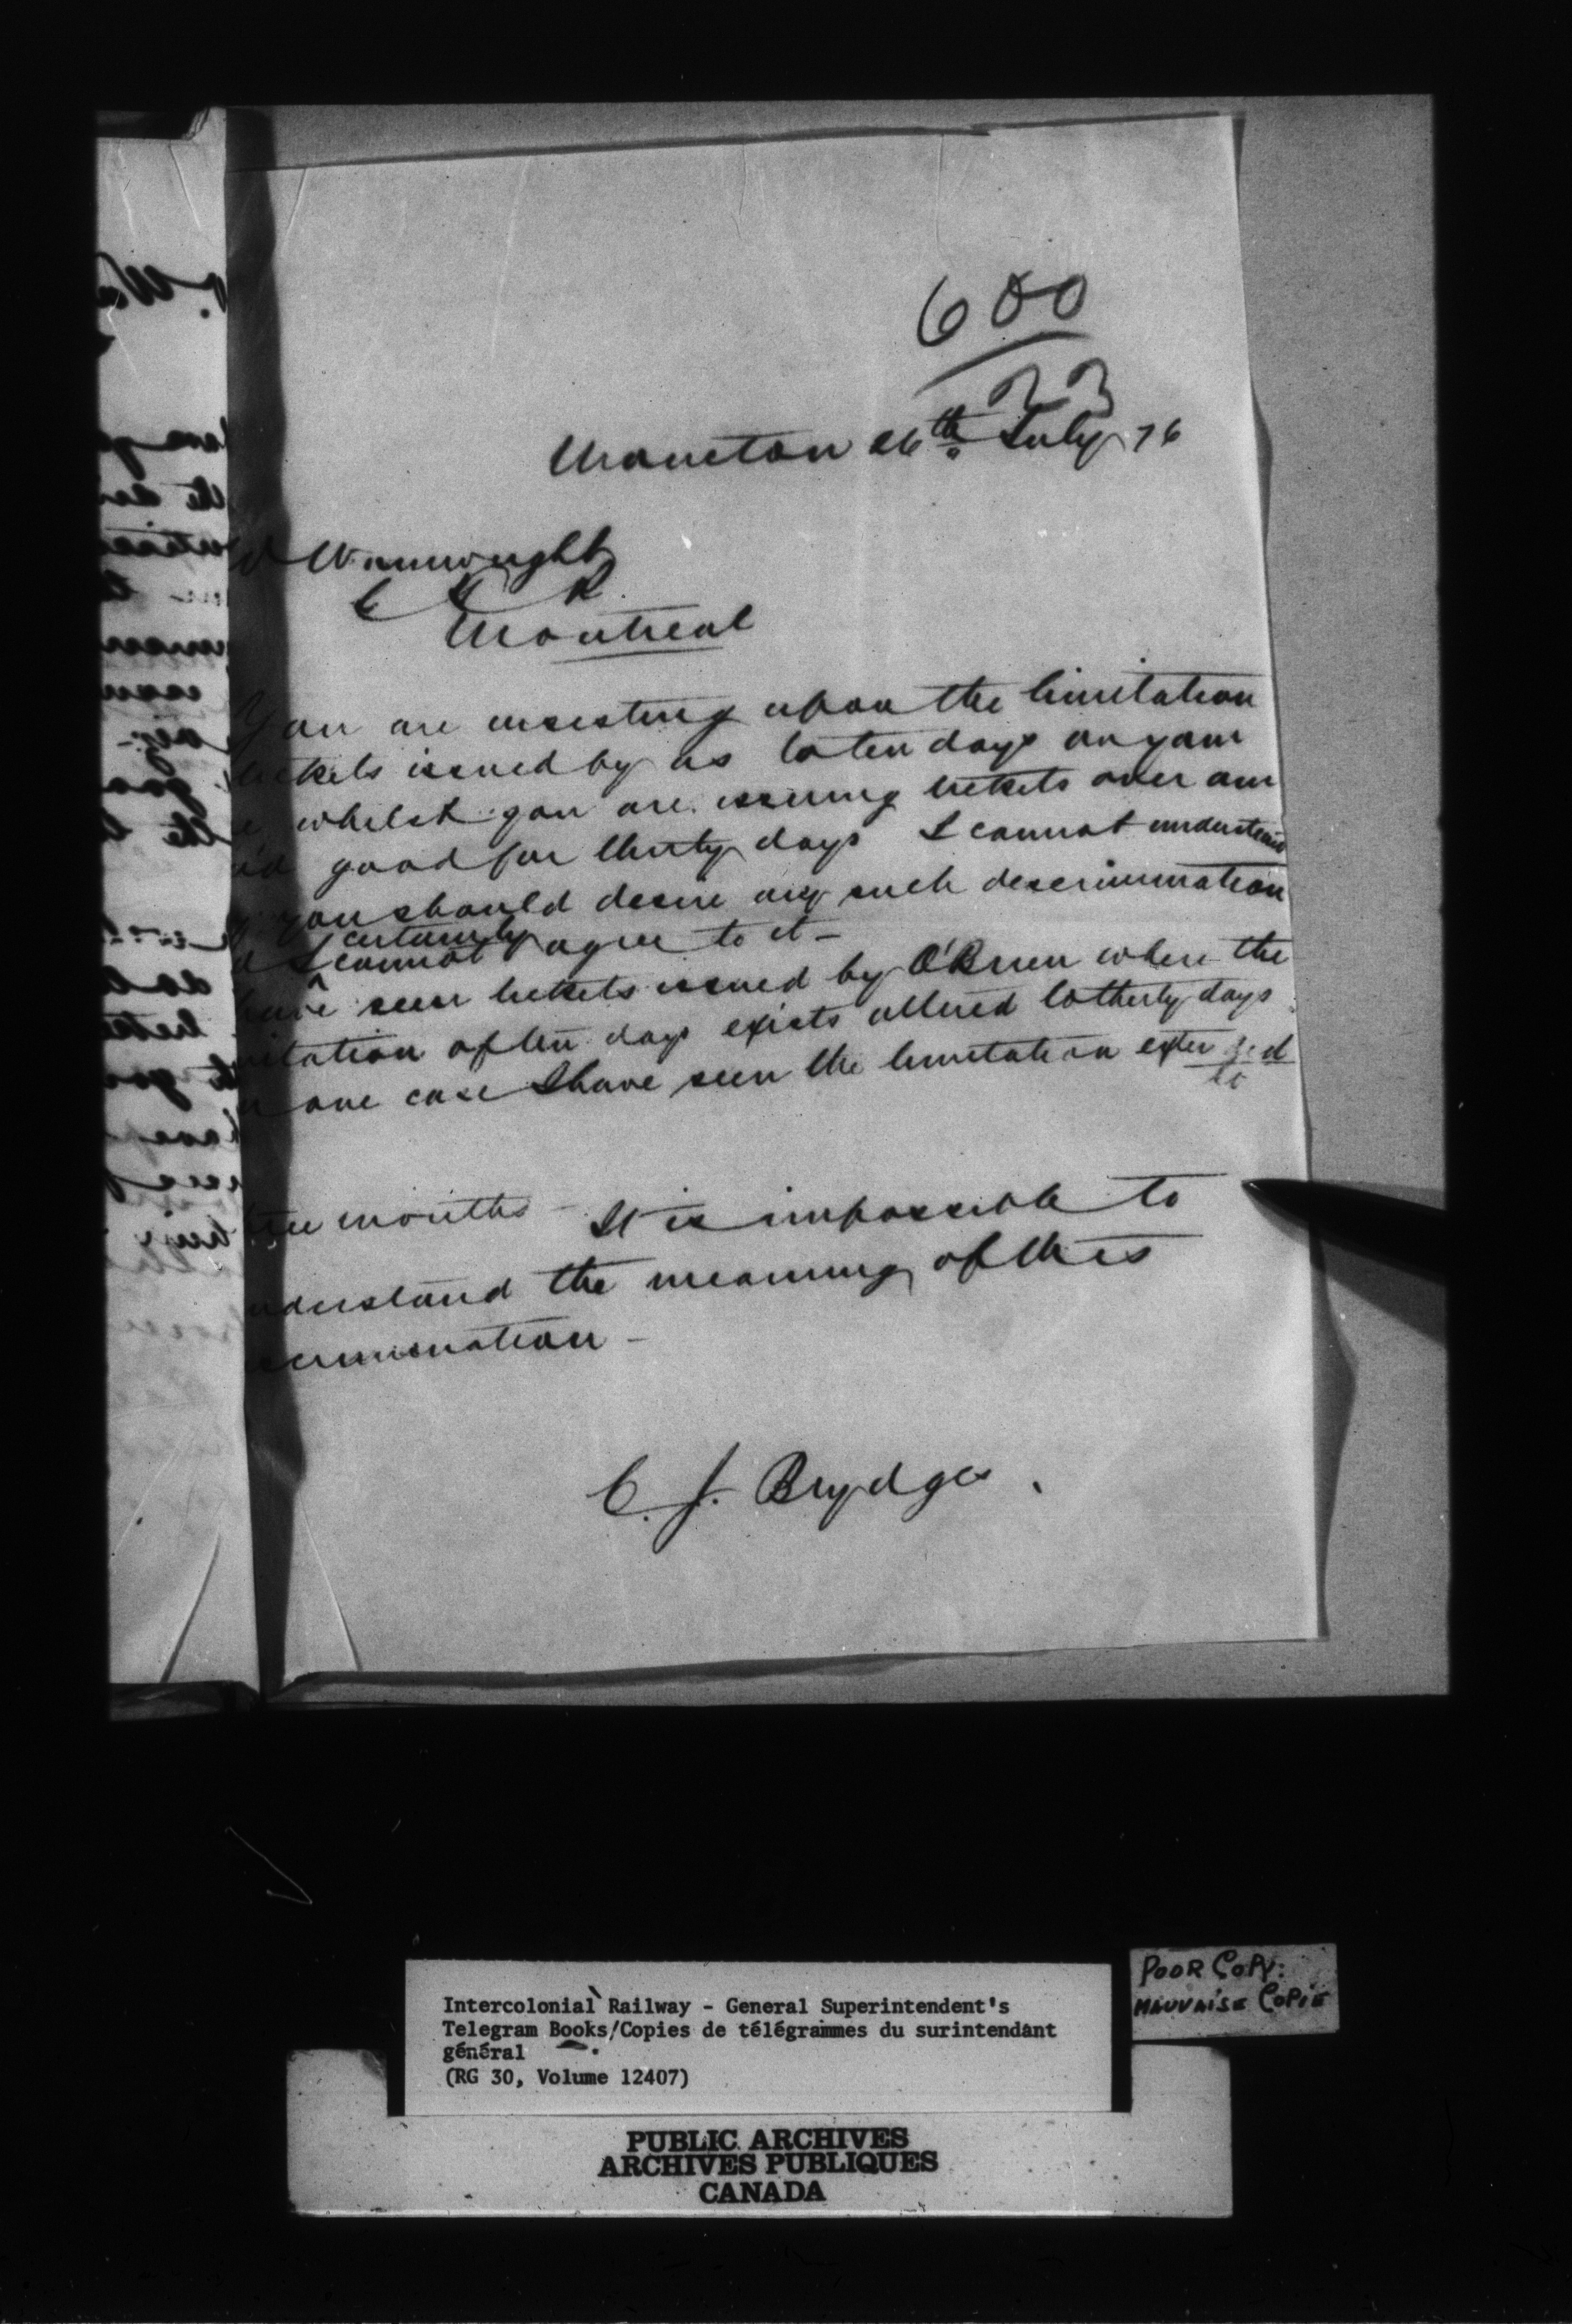 600
33
Moncton 26th July 76
W Wainwright
G T R
Montreal
You are insisting upon the limitation
tickets issued by us to ten days on your
whilst you are issuing tickets over our
good for thirty days I cannot understand
you should desire any such descrimination
certainly
I cannot agree to it -
have seen tickets issued by O'Brien where the
itation of ten days exists altered to thirty days
one case I have seen the limitation extended
to
months - It is impossible to
nderstand the meaning of this
crimination -
C. J. Brydges.
POOR COPY:
MAUVAISE COPIE
Intercolonial Railway - General Superintendent's
Telegram Books/Copies de télégrammes du surintendant
général
(RG 30, Volume 12407)
PUBLIC ARCHIVES
ARCHIVES PUBLIQUES
CANADA